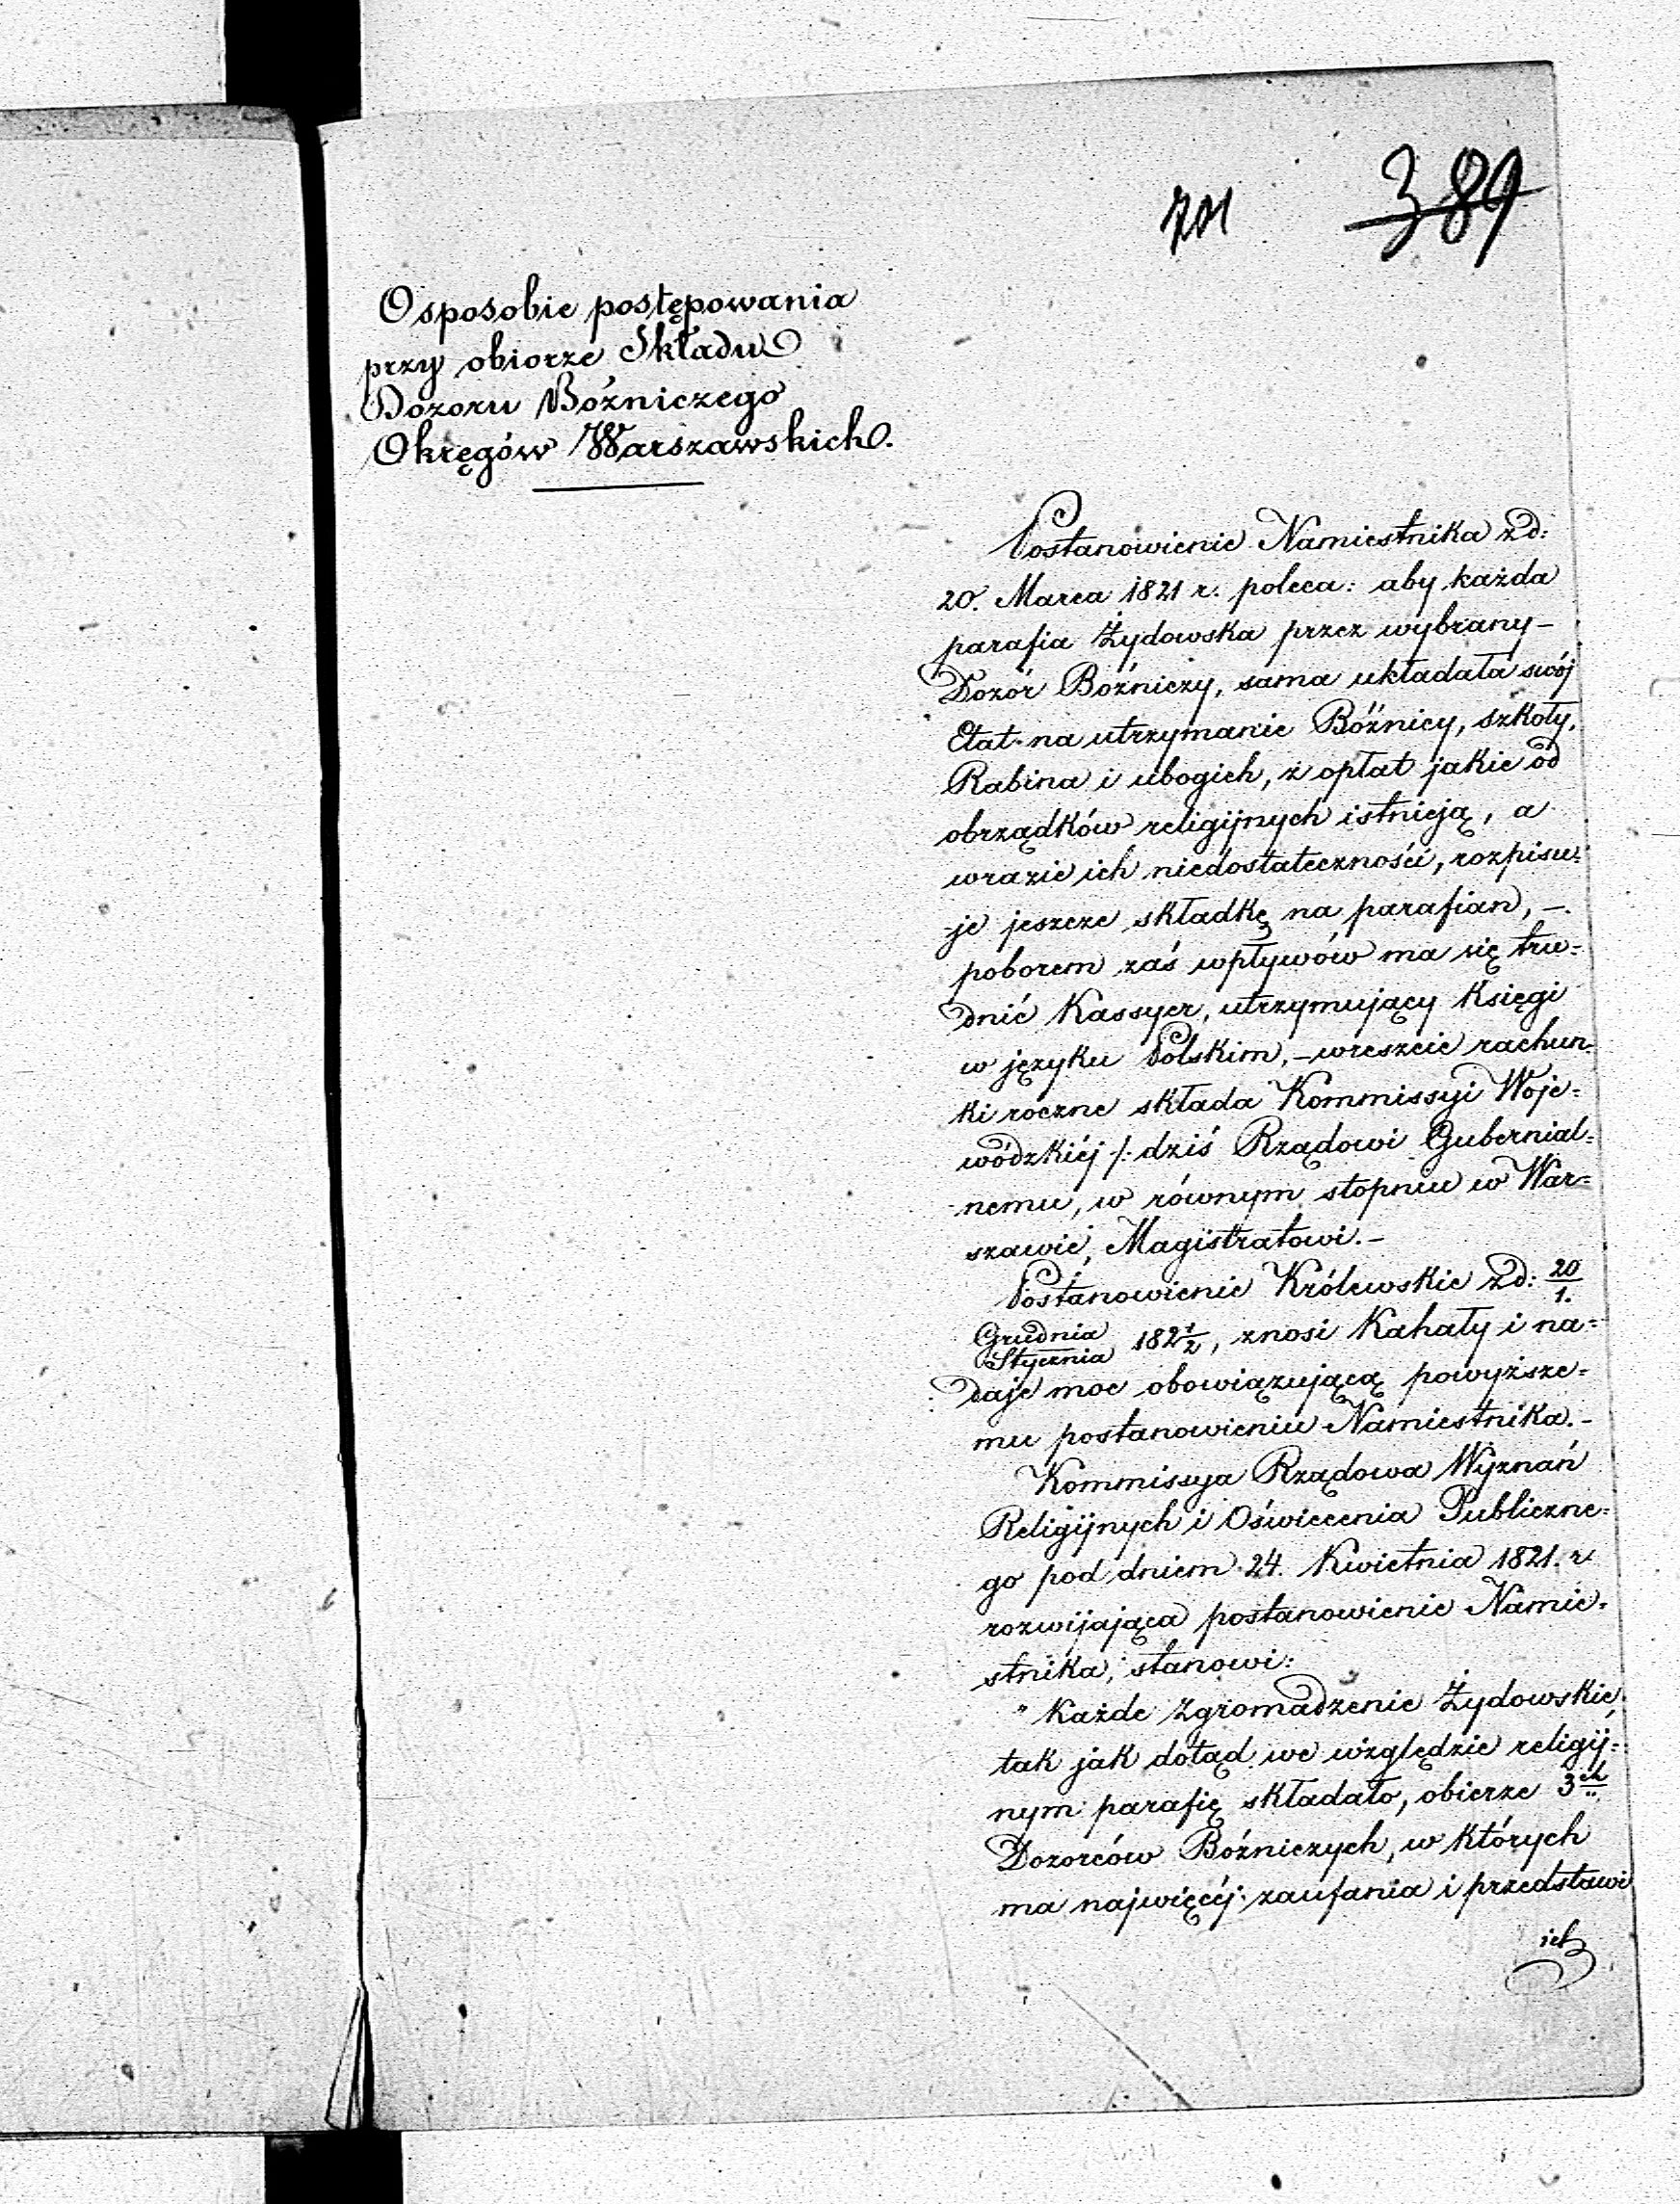 701
389
O sposobie postępowania
przy obiorze Składu
Dozoru Bóżniczego
Okręgów Warszawskich.
Postanowienie Namiestnika z d:
20. Marca 1821 r. poleca: aby każda
parafia Żydowska przez wybrany –
Dozór Bóżniczy, sama układała swój
Etat na utrzymanie Bóżnicy, szkoły,
Rabina i ubogich, z opłat jakie od
obrządków religijnych istnieją, a
wrazie ich niedostateczności, rozpisu=
je jeszcze składkę na parafian, –
poborem zaś wpływów ma się tru=
dnić Kassyer, utrzymujący Księgi
w języku Polskim, – wreszcie rachun=
ki roczne składa Kommissyi Woje=
wódzkiéj /: dziś Rządowi Gubernial=
nemu, w równym stopniu w War=
szawie, Magistratowi. –
Postanowienie Królewskie z d: 20/1.
Grudnia/Stycznia 182 1/2, znosi Kahały i na=
daje moc obowiązującą powyższe=
mu postanowieniu Namiestnika. –
Kommissya Rządowa Wyznań
Religijnych i Oświecenia Publiczne=
go pod dniem 24. Kwietnia 1821. r
rozwijająca postanowienie Namie=
stnika, stanowi:
" Każde Zgromadzenie Żydowskie,
tak jak dotąd we względzie religij=
nym parafię składało, obierze 3ch
Dozorców Bóżniczych, w których
ma najwięcéj zaufania i przedstawi
ich